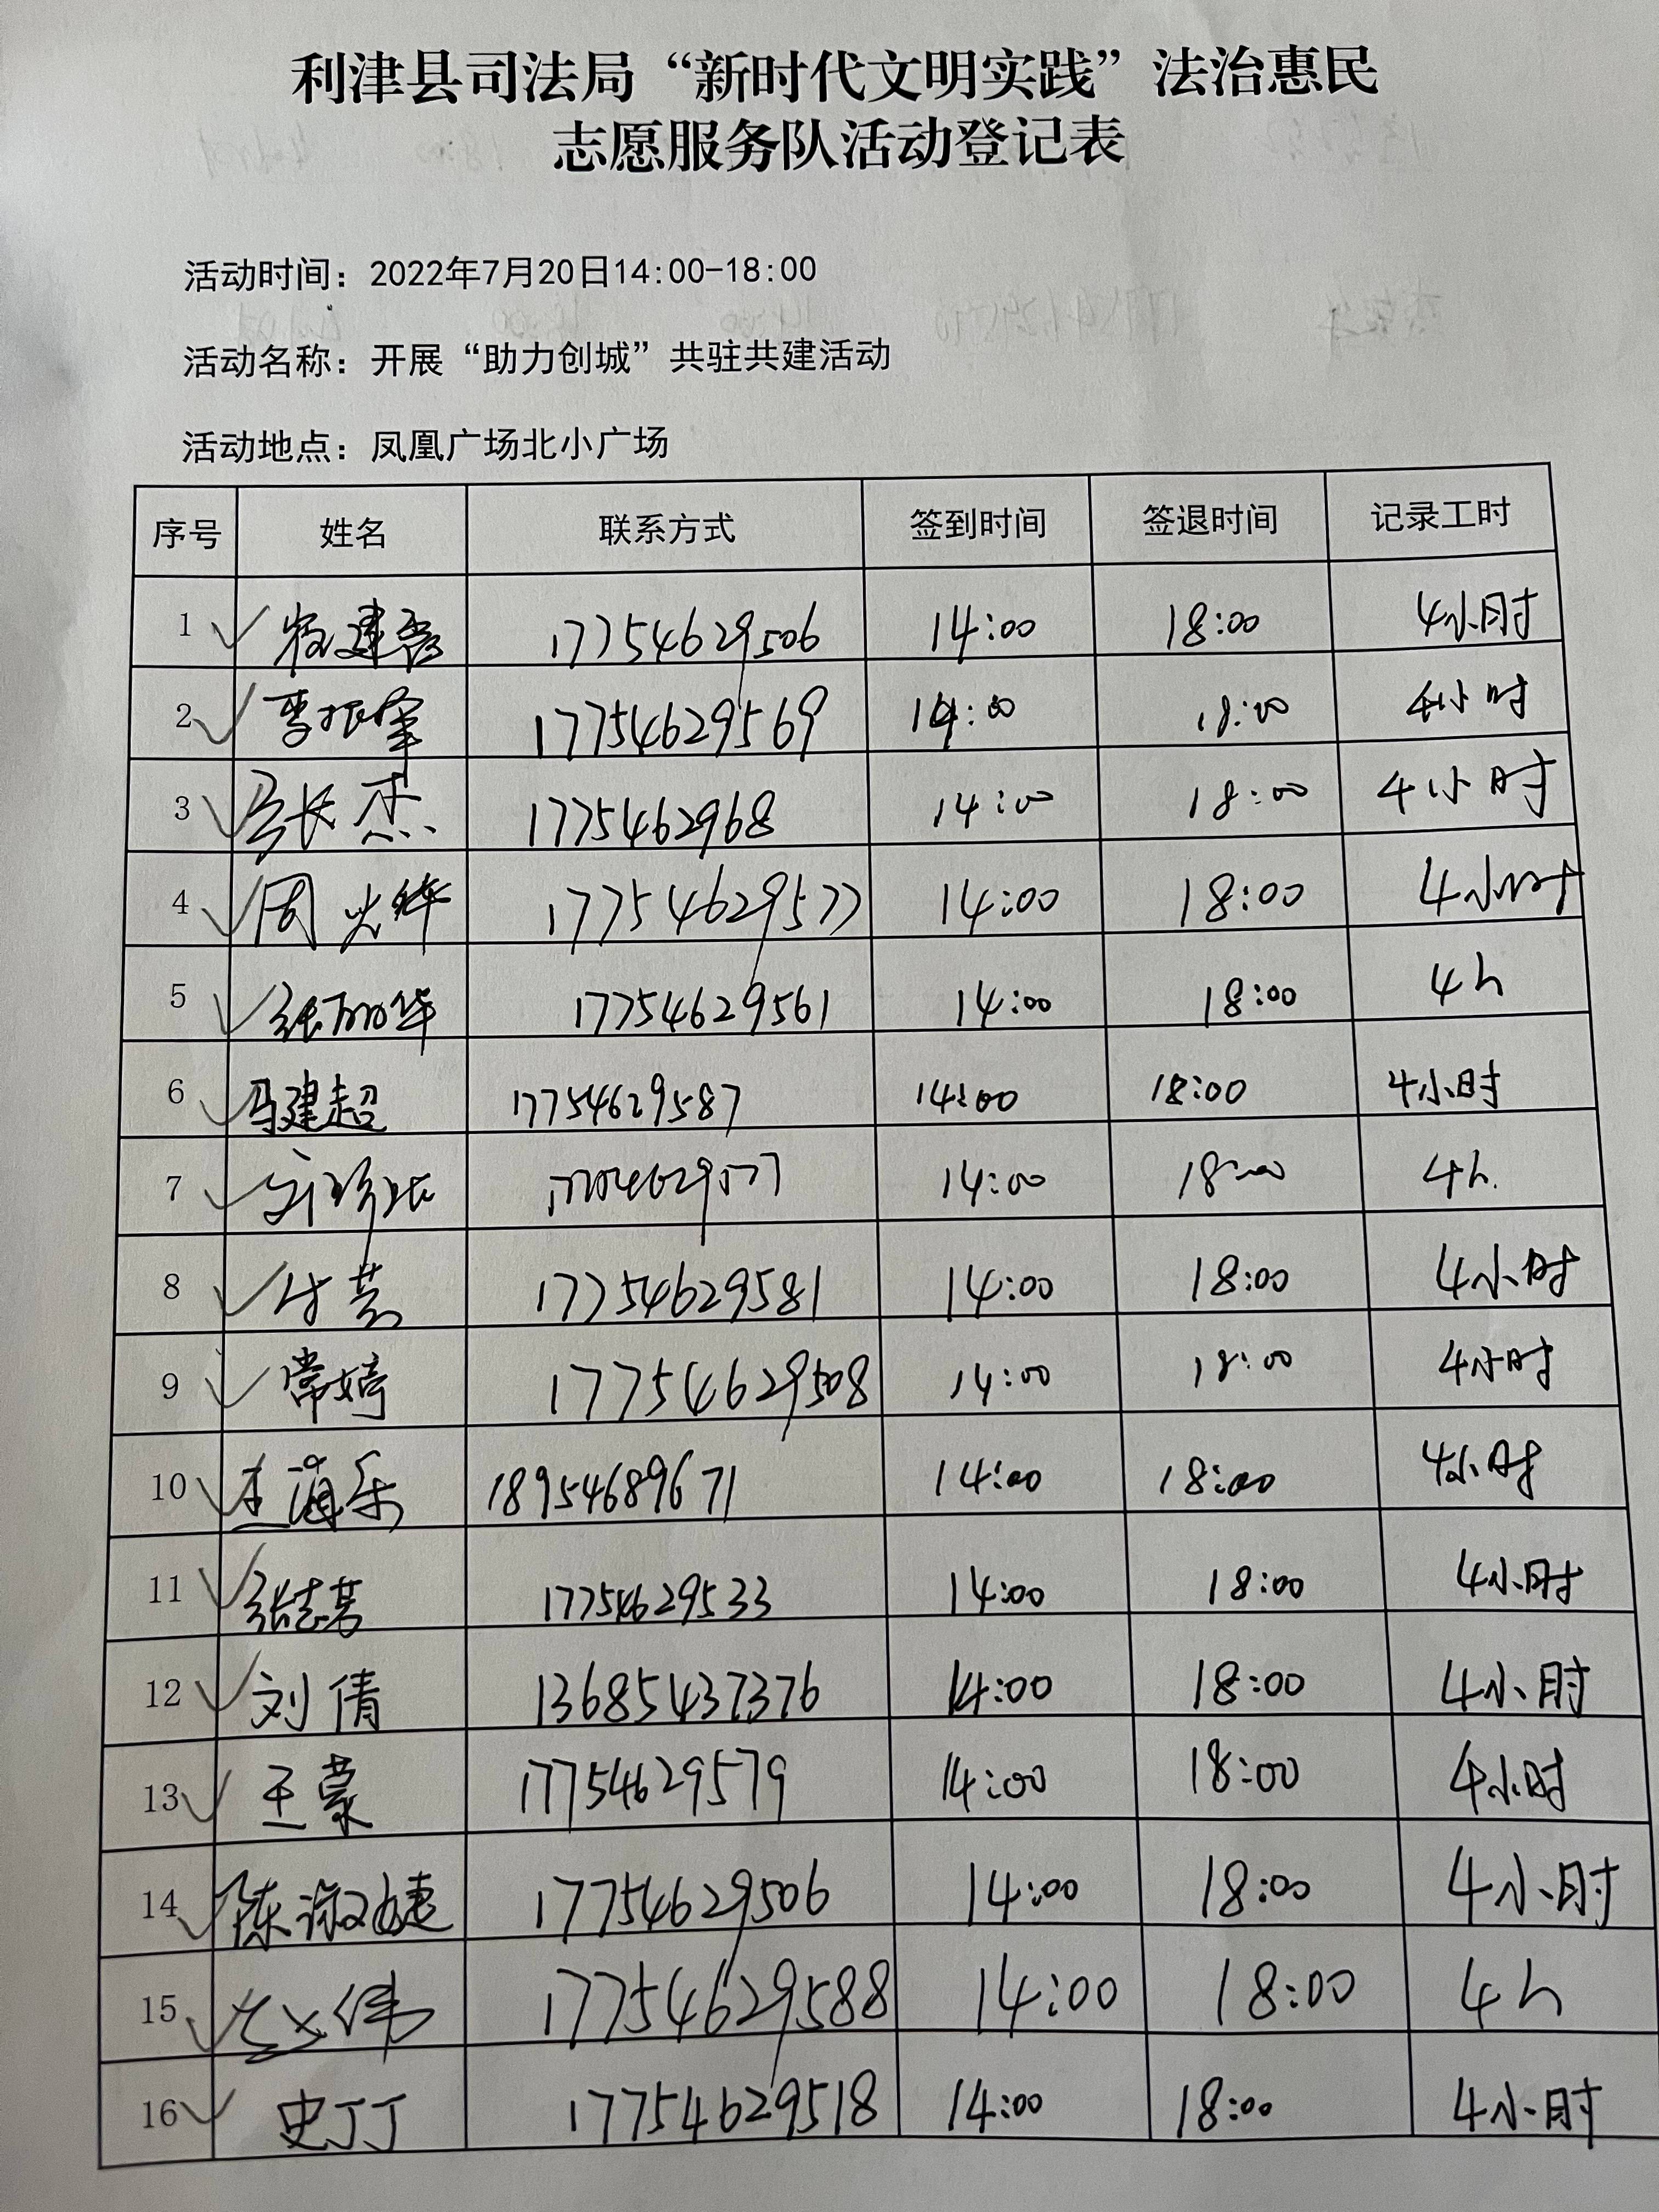 利津县司法局“新时代文明实践”法治惠民
志愿服务队活动登记表
活动时间：2022年7月20日14:00-18:00
活动名称：开展“助力创城”共驻共建活动
活动地点：凤凰广场北小广场
序号 姓名 联系方式 签到时间 签退时间 记录工时
1 17754629506 14:00 18:00 4小时
2 17754629569 14:00 18:00 4小时
3 张杰 1775462968 14:00 18:00 4小时
4 周光华 17754629577 14:00 18:00 4小时
5 张丽华 17754629561 14:00 18:00 4h
6 马建超 17754629587 14:00 18:00 4小时
7 14:00 18:00 4h.
8 付芸 17754629581 14:00 18:00 4小时
9 常婷 17754629508 14:00 18:00 4小时
10 王海乐 18954689671 14:00 18:00 4小时
11 张志芳 17754629533 14:00 18:00 4小时
12 刘倩 13685437376 14:00 18:00 4小时
13 王蒙 17754629579 14:00 18:00 4小时
14 陈淑婕 17754629506 14:00 18:00 4小时
15 赵伟 17754629588 14:00 18:00 4h
16 史丁丁 17754629518 14:00 18:00 4小时